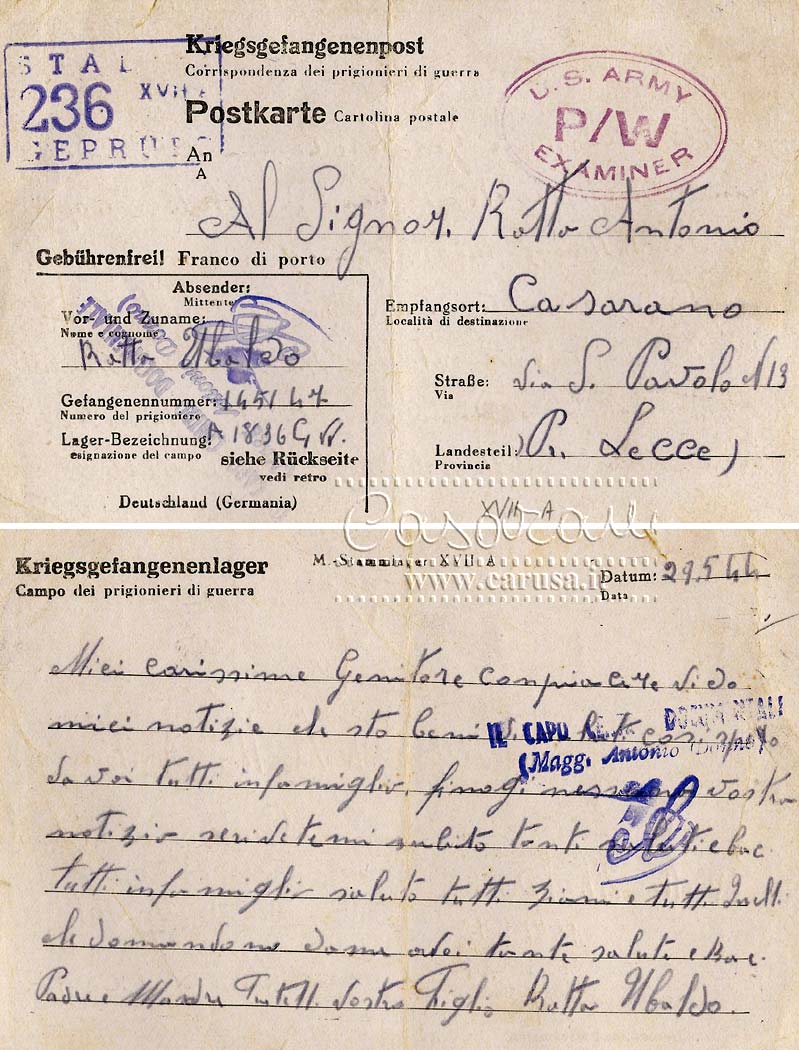 STAL
236 XVII A
GEPRÜFT
Kriegsgefangenenpost
Corrispondenza dei prigionieri di guerra
Postkarte Cartolina postale
U.S. ARMY
P/W
EXAMINER
An
A
Al Signor. Ratta Antonio
Gebührenfrei! Franco di porto
Absender:
Mittente
Vor- und Zuname:
Nome e cognome
Ratta Ubaldo
Gefangenennummer: 145147
Numero del prigioniero
Lager-Bezeichnung: A 1836 G W.
esignazione del campo
siehe Rückseite
vedi retro
Deutschland (Germania)
Empfangsort: Casarano
Località di destinazione
Straße: via S. Pavolo N 13
Via
Landesteil: (Pr. Lecce)
Provincia
XVII A
Casarano
www.carusa.it
Kriegsgefangenenlager
Campo dei prigionieri di guerra
M.-Stammlager XVII A
Datum: 29.5.44
Data
Miei carissime Genitore con piacere vi do
miei notizie che sto beni di salute cosi spero
da voi tutti in famiglia, finogi nessuna vostra
notizia scrivetemi subito tanti saluti e baci
tutti in famiglia saluto tutti ziani e tutti Quelli
che domandono dame adei tante salute e Baci
Padre e Madre Fratelli vostro Figlio Ratta Ubaldo.
IL CAPO DOCUMENTALE
(Magg. Antonio